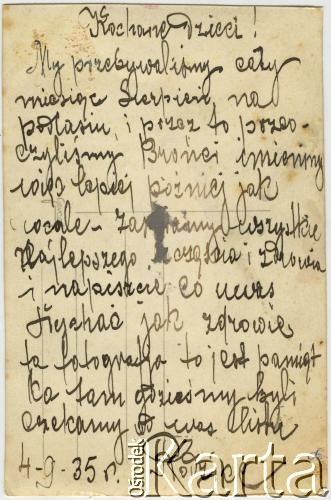 Kochane dzieci!
My przebywaliśmy cały
miesiąc Sierpień na
podlasiu, i przez to przeo-
czyliśmy Bronci imieniny
więc lepiej później jak
wcale - wszystkie
Najlepszego i zdrowia
i napiszcie co u was
słychać jak zdrowie
ta fotografja to jest pamiąt
ka tam gdzieśmy byli
czekamy od was listu
4-9-35 r.
Ośrodek
Karta